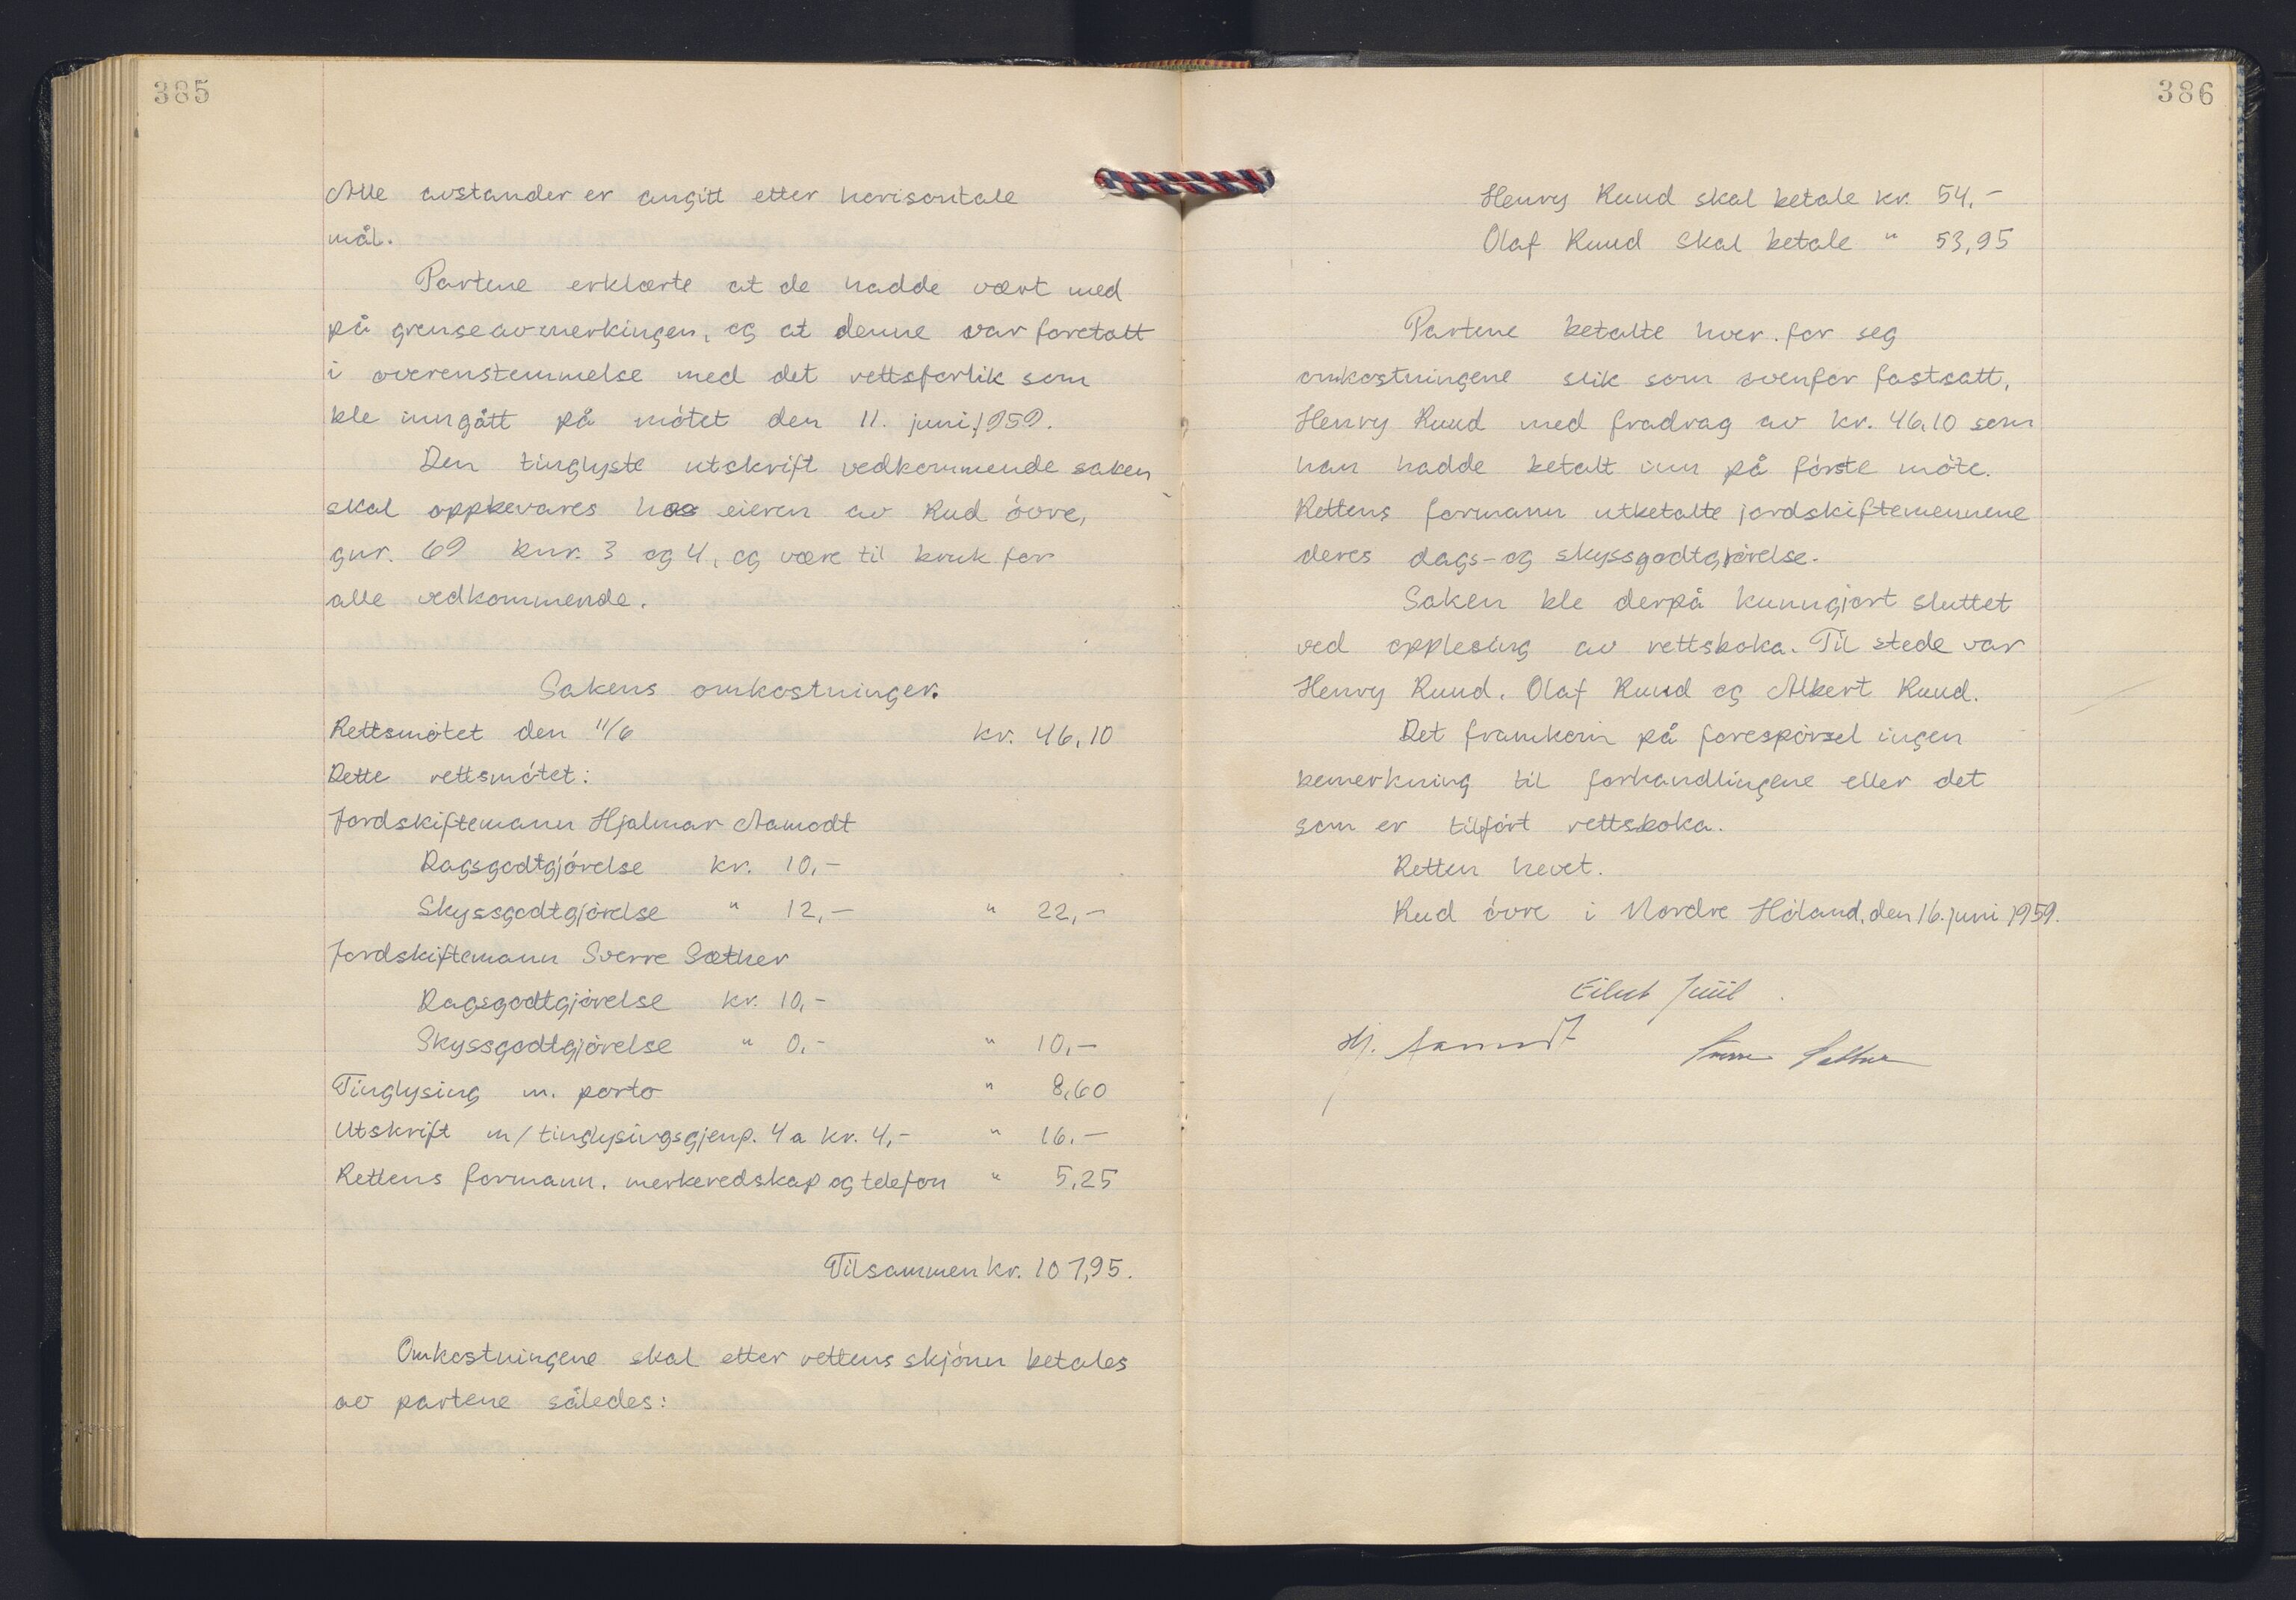 385
Alle avstander er angitt etter horisontale
mål.
Partene erklærte at de hadde vært med
på grenseavmerkingen, og at denne var foretatt
i overenstemmelse med det rettsforlik som
ble inngått på møtet den 11. juni 1959.
Den tinglyste utskrift vedkommende saken
skal oppbevares hos eieren av Rud øvre,
gnr. 69 bnr. 3 og 4, og være til bruk for
alle vedkommende.
Sakens omkostninger.
Rettsmøtet den 11/6 kr. 46,10
Dette rettsmøtet:
Jordskiftemann Hjalmar Aamodt
Dagsgodtgjørelse kr. 10,-
Skyssgodtgjørelse " 12,- " 22,-
Jordskiftemann Sverre Sæther
Dagsgodtgjørelse kr. 10,-
Skyssgodtgjørelse " 0,- " 10,-
Tinglysing m. porto " 8,60
Utskrift m/tinglysingsgjenp. 4 a kr. 4,- " 16,-
Rettens formann, merkeredskap og telefon " 5,25
Tilsammen kr. 107,95.
Omkostningene skal etter rettens skjønn betales
av partene således:
386
Henry Ruud skal betale kr. 54,-
Olaf Ruud skal betale " 53,95
Partene betalte hver for seg
omkostningene slik som ovenfor fastsatt,
Henry Ruud med fradrag av kr. 46,10 som
han hadde betalt inn på første møte.
Rettens formann utbetalte jordskiftemennene
deres dags- og skyssgodtgjørelse.
Saken ble derpå kunngjort sluttet
ved opplesing av rettsboka. Til stede var
Henry Ruud, Olaf Ruud og Albert Ruud.
Det framkom på forespørsel ingen
bemerkning til forhandlingene eller det
som er tilført rettsboka.
Retten hevet.
Rud øvre i Nordre Høland, den 16. juni 1959.
Eilub Juül
Hj. Aamodt Sverre Sæther